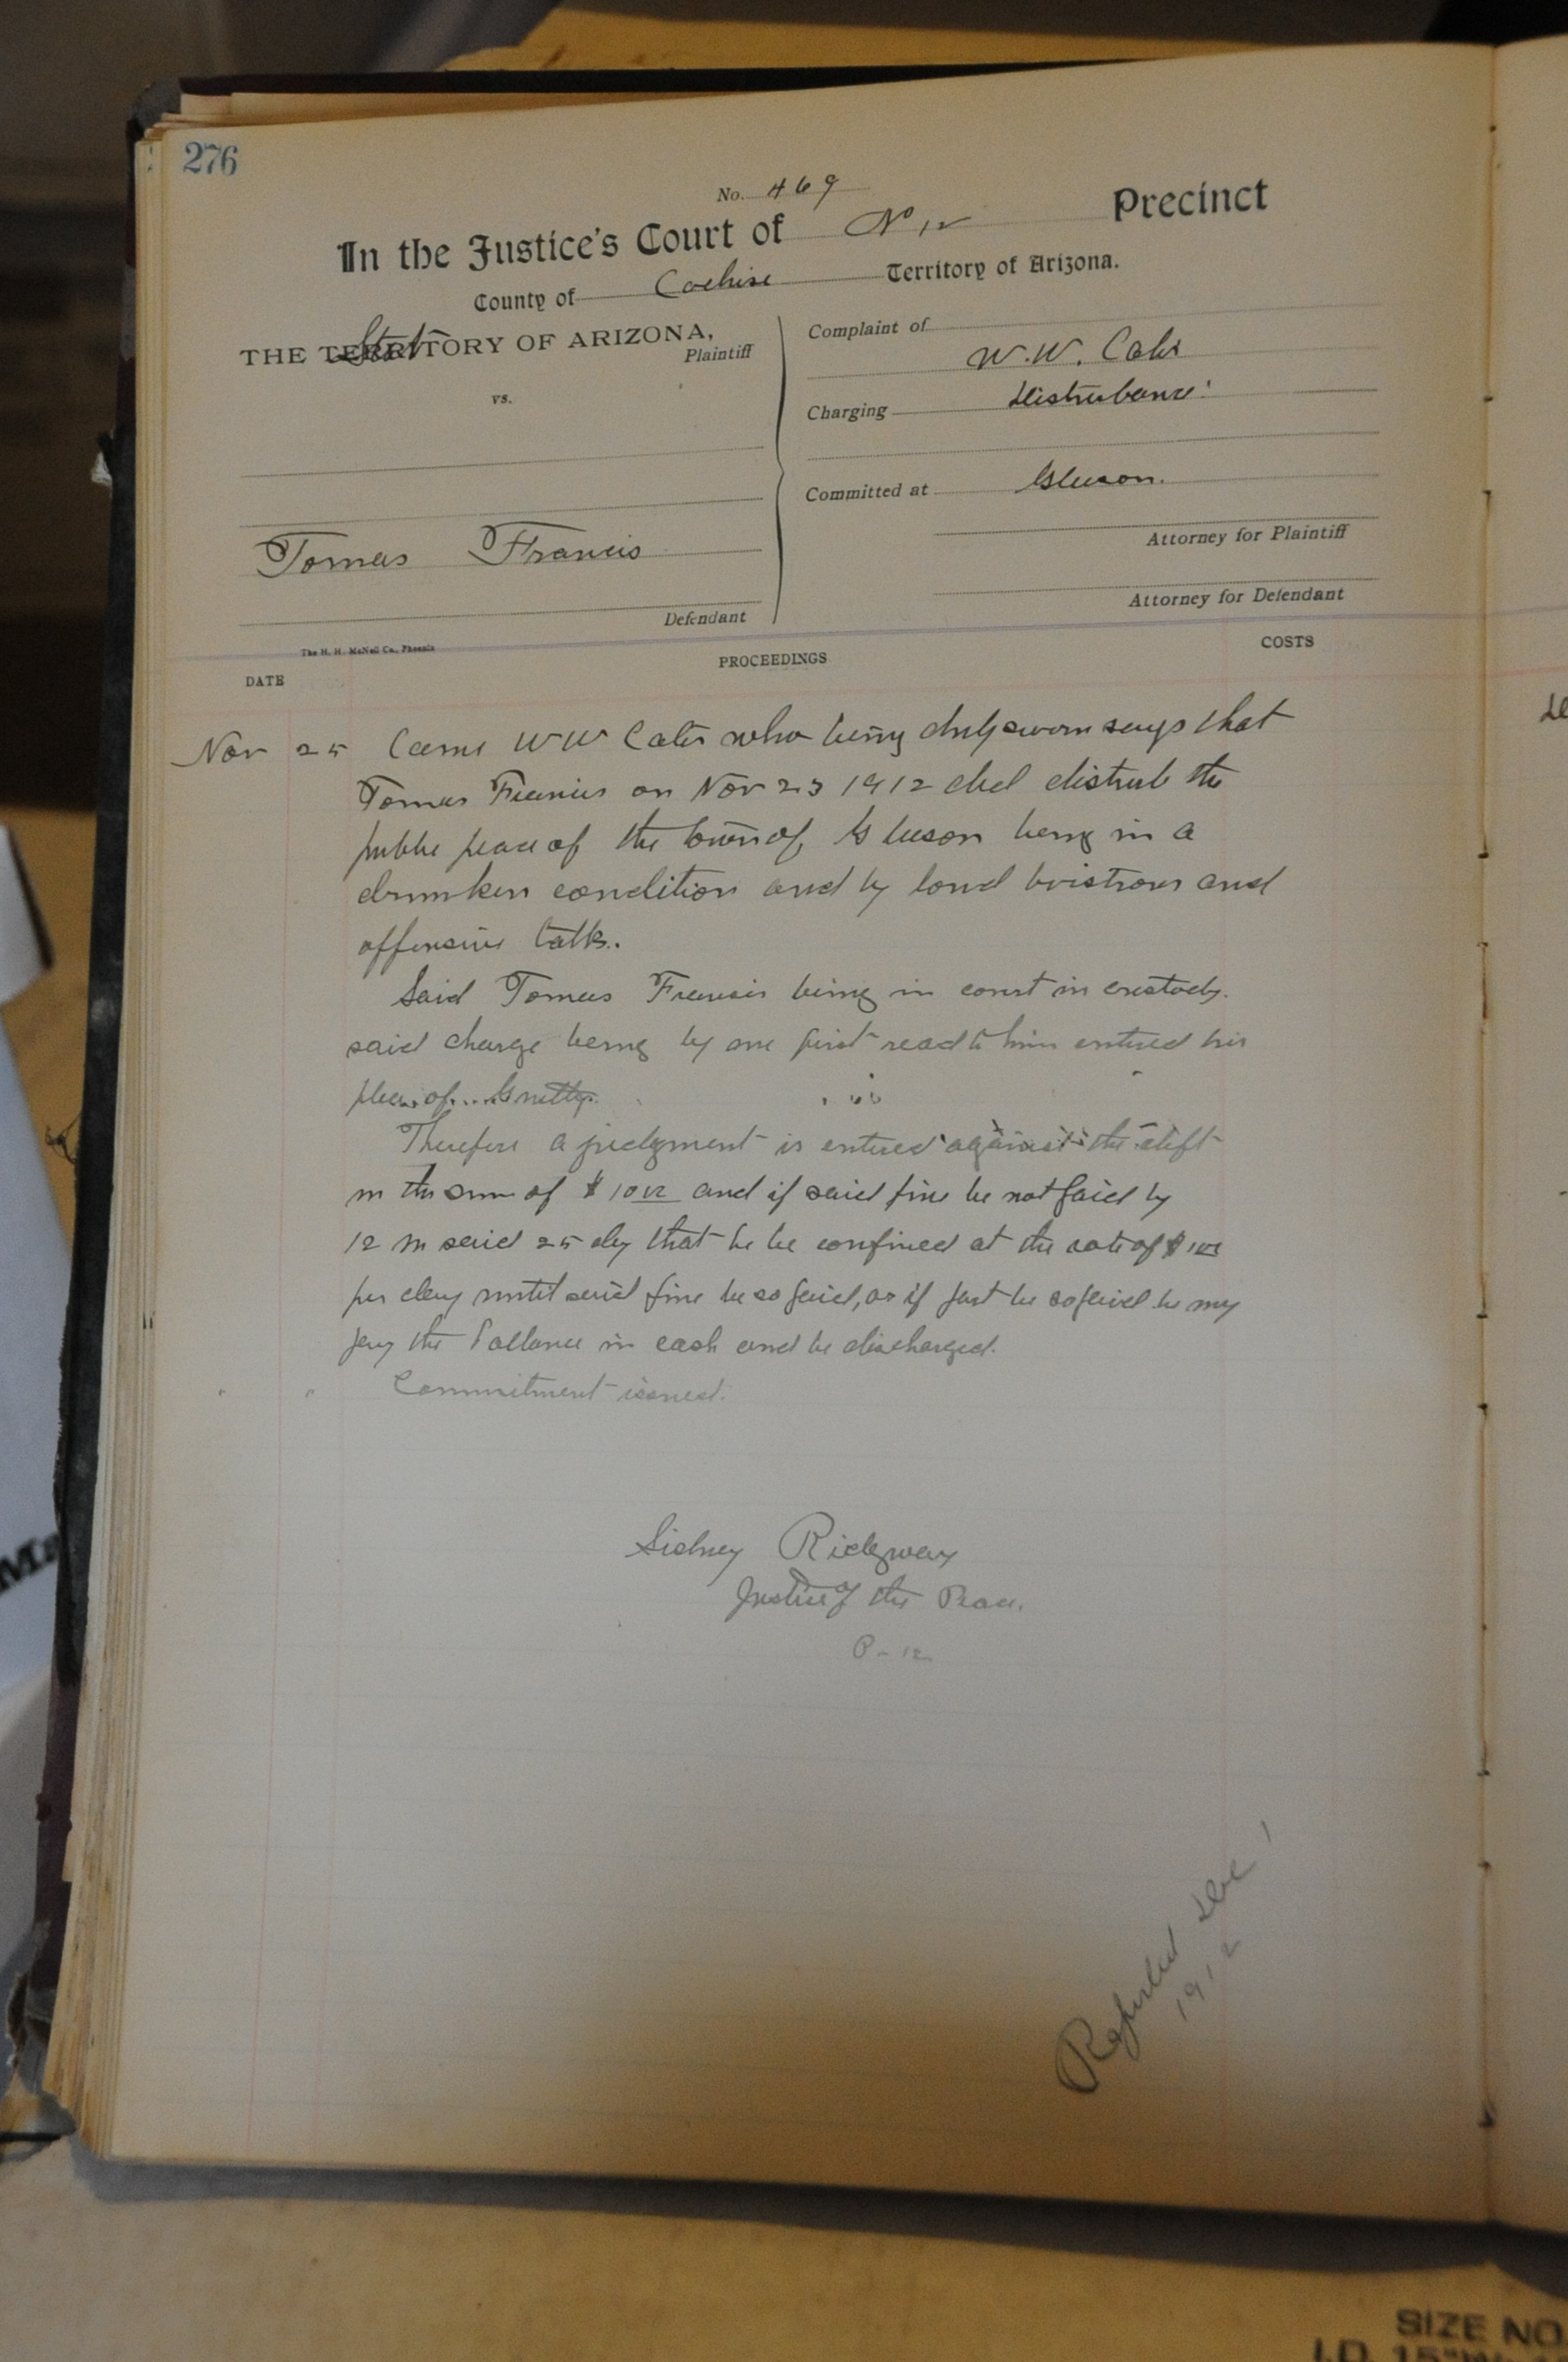 276
No. 469
In the Justice's Court of No 12 Precinct
County of Cochise Territory of Arizona.
THE TERRITORY OF ARIZONA,
State
Plaintiff
vs.
Tomas Francis
Defendant
Complaint of
W. W. Cates
Charging Disturbance
Committed at Gleeson.
Attorney for Plaintiff
Attorney for Defendant
The H. H. McNeil Co., Phoenix
DATE PROCEEDINGS COSTS
Nov 25 Came W W Cates who being duly sworn says that
Tomas Francis on Nov 23 1912 did distrub the
public peace of the town of Gleeson being in a
drunken condition and by loud boistrous and
offensive talk.
Said Tomas Francis being in court in custody.
said charge being by me first read to him entered his
plea of... Guilty.
Therefore a judgment is entered against the deft
in the sum of $ 10 and if said fine be not paid by
12 m said 25 day that he be confined at the rate of $ 1 00
per day until said fine be so paid, or if part be so paid he may
pay the ballance in cash and be discharged.
" " Commitment issued.
Sidney Ridgway
Justice of the Peace.
P-12
Reported Dec 1
1912
SIZE NO.
I.D. 15"W